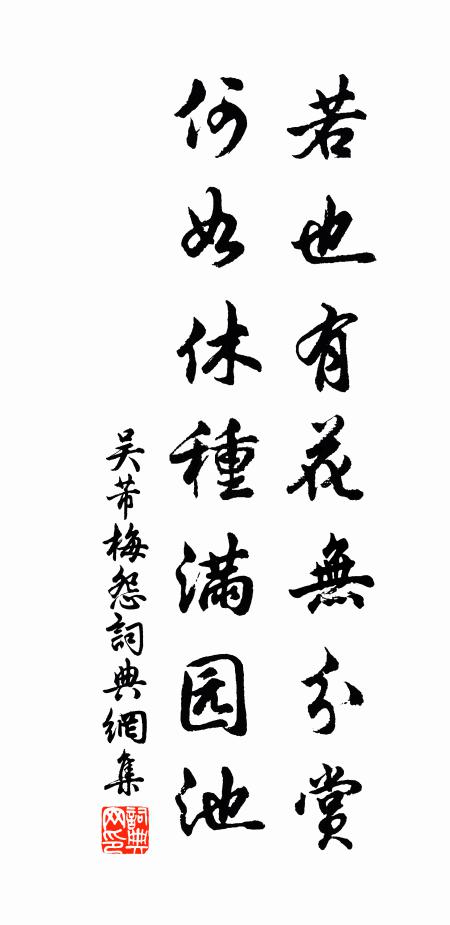 若也有花無分賞
何如休種滿园池
吴芾梅怨詞典網集
詞典网印